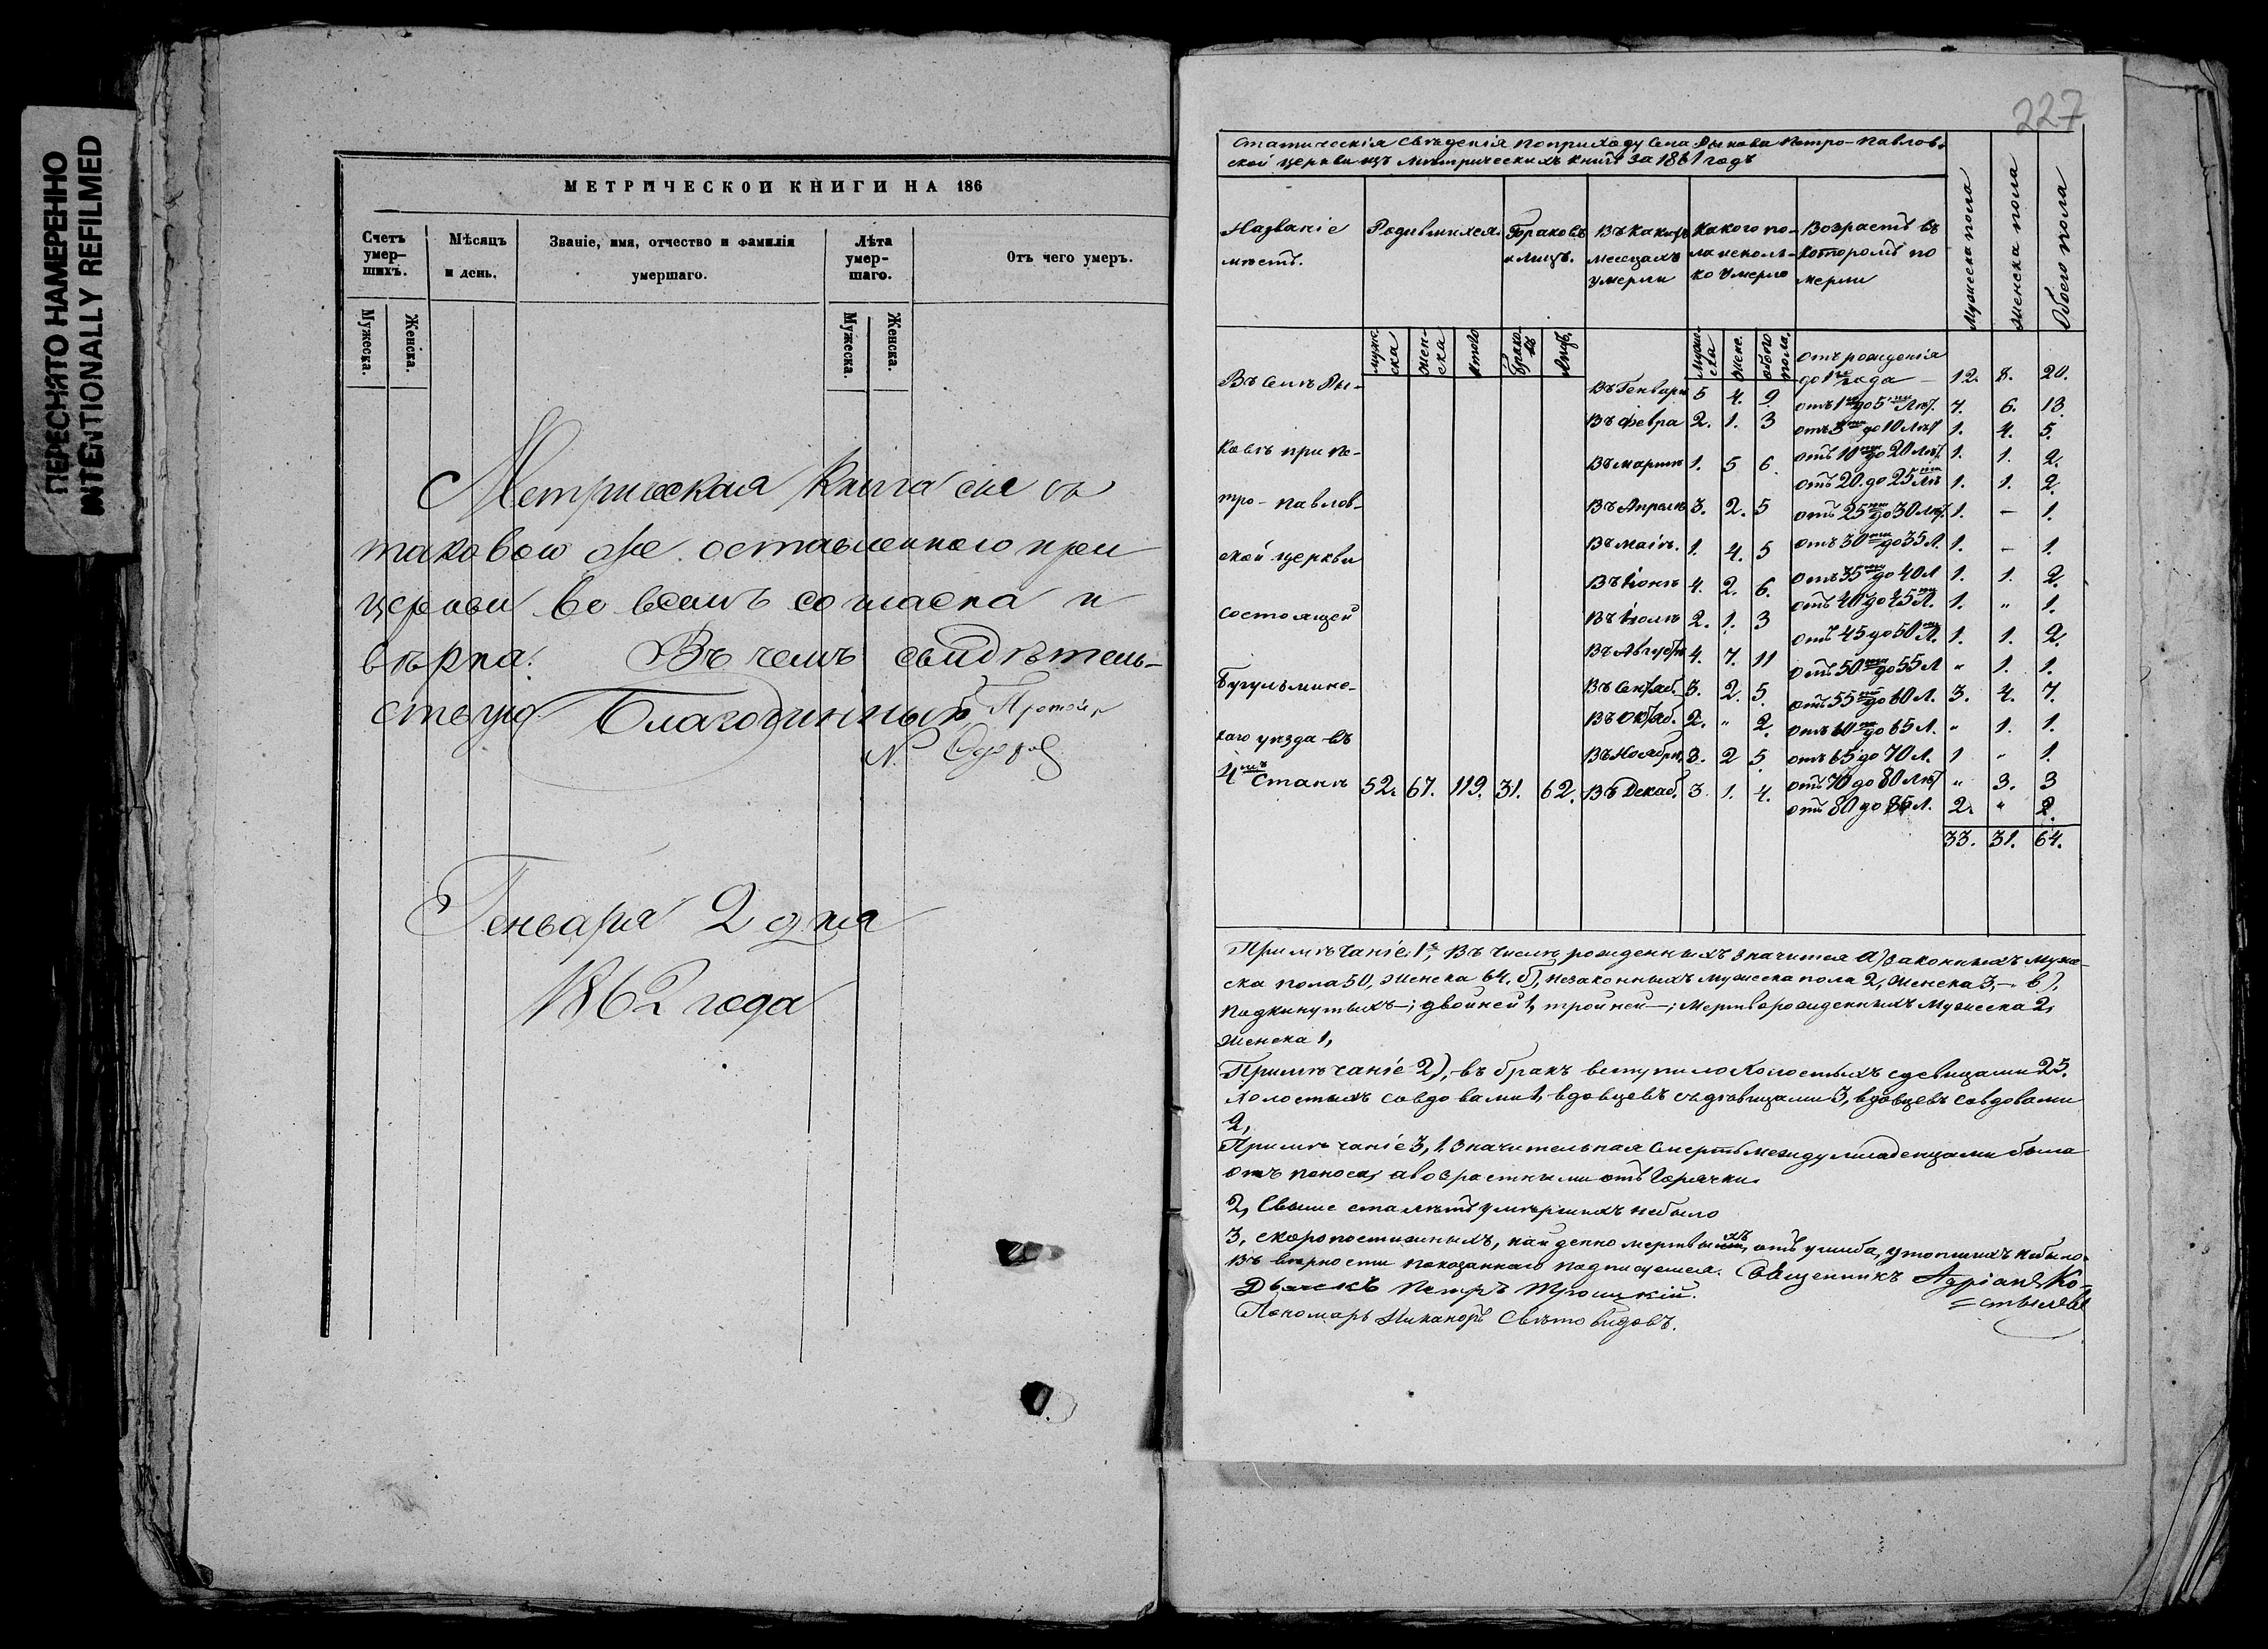 ПЕРЕСНЯТО НАМЕРЕННО
INTENTIONALLY REFILMED
МЕТРИЧЕСКОЙ КНИГИ НА 186
Счетъ умер-шихъ.
Мѣсяцъ и день.
Званіе, имя, отчество и фамилія умершаго.
Лѣта умер-шаго.
Отъ чего умеръ.
Мужеска.
Женска.
Мужеска.
Женска.
Метрическая книга сія съ
таковою же оставленною при
церкви во всемъ согласна и
вѣрна. Въ чемъ свидѣтель-
ствую Благочинный
Генваря 2 дня
1862 года
227
Статическія свѣденія по приходу села Дымова Петро-Павлов-
ской церкви изъ метрическихъ книгъ за 1861 годъ
Названіе мѣстъ.
Родившихся.
Браковъ и лицъ.
Въ какихъ месяцахъ умерли
Какого по-ла и сколь-ко умерло
Возрастъ въ которомъ по мерли
Мужеска пола
Женска пола
Обоего пола
муже-ска
жен-ска
итого
брако-въ
лицъ
муже-ска
женс.
обоего пола.
Въ селѣ Ды-
ковѣ при Пе-
тро-павлов-
ской церкви
состоящей
Бугульминс-
каго уѣзда въ
4мъ станѣ 52. 67. 119. 31. 62.
Въ Генварѣ 5 4. 9
Въ Февра 2. 1. 3
Въ мартѣ 1. 5 6.
Въ Апрелѣ 3. 2. 5
Въ маіѣ. 1. 4. 5
Въ іюнѣ 4. 2. 6.
Въ іюлѣ 2. 1. 3
Въ Августѣ 4. 7. 11
Въ Сентяб. 3. 2. 5.
Въ Октяб. 2. " 2.
Въ Ноябрѣ 3. 2 5.
Въ Декаб. 3. 1. 4.
отъ рожденія
до 1го года — 12. 8. 20.
отъ 1го до 5ти лѣт. 7. 6. 13.
отъ 5ти до 10 лѣт 1. 4. 5.
отъ 10ти до 20 лѣт. 1. 1. 2.
отъ 20. до 25ти лѣ 1. 1. 2.
отъ 25ти до 30 лѣт. 1. — 1.
отъ 30ти до 35 л. 1. — 1.
отъ 35ти до 40 л 1. 1. 2.
отъ 40 до 45ти л. 1. " 1.
отъ 45 до 50ти л. 1. 1. 2.
отъ 50ти до 55 л " 1. 1.
отъ 55ти до 60 л. 3. 4. 7.
отъ 60ти до 65 л. " 1. 1.
отъ 65 до 70 л. 1 " 1.
отъ 70 до 80 лѣт " 3. 3
отъ 80 до 85 л. 2. " 2.
33. 31. 64.
Примѣчаніе 1е, Въ числѣ рожденныхъ значится а) законныхъ муже-
ска пола 50, женска 64. б), незаконныхъ мужеска пола 2, женска 3, —. в),
подкинутыхъ —; двойней 1, тройней —; мертворожденныхъ мужеска 2,
женска 1,
Примѣчаніе 2), въ бракъ вступило холостыхъ с девицами 25.
холостыхъ со вдовами 1, вдовцевъ съ дѣвицами 3, вдовцевъ со вдовами
2,
Примѣчаніе 3, 1. Значительная смерть между младенцами была
отъ поноса, а возрастными отъ горячки.
2, Свыше ста лѣтъ умершихъ небыло
3, скоропостижныхъ, найденно мертвыхъ, отъ ушиба, утопшихъ небыло.
Въ вѣрности показаннаго подписуемся. Священникъ Адріанъ Ко-
=стылевъ
Дьячекъ Петръ Троицкій.
Пономарь Никаноръ Свѣтовидовъ.